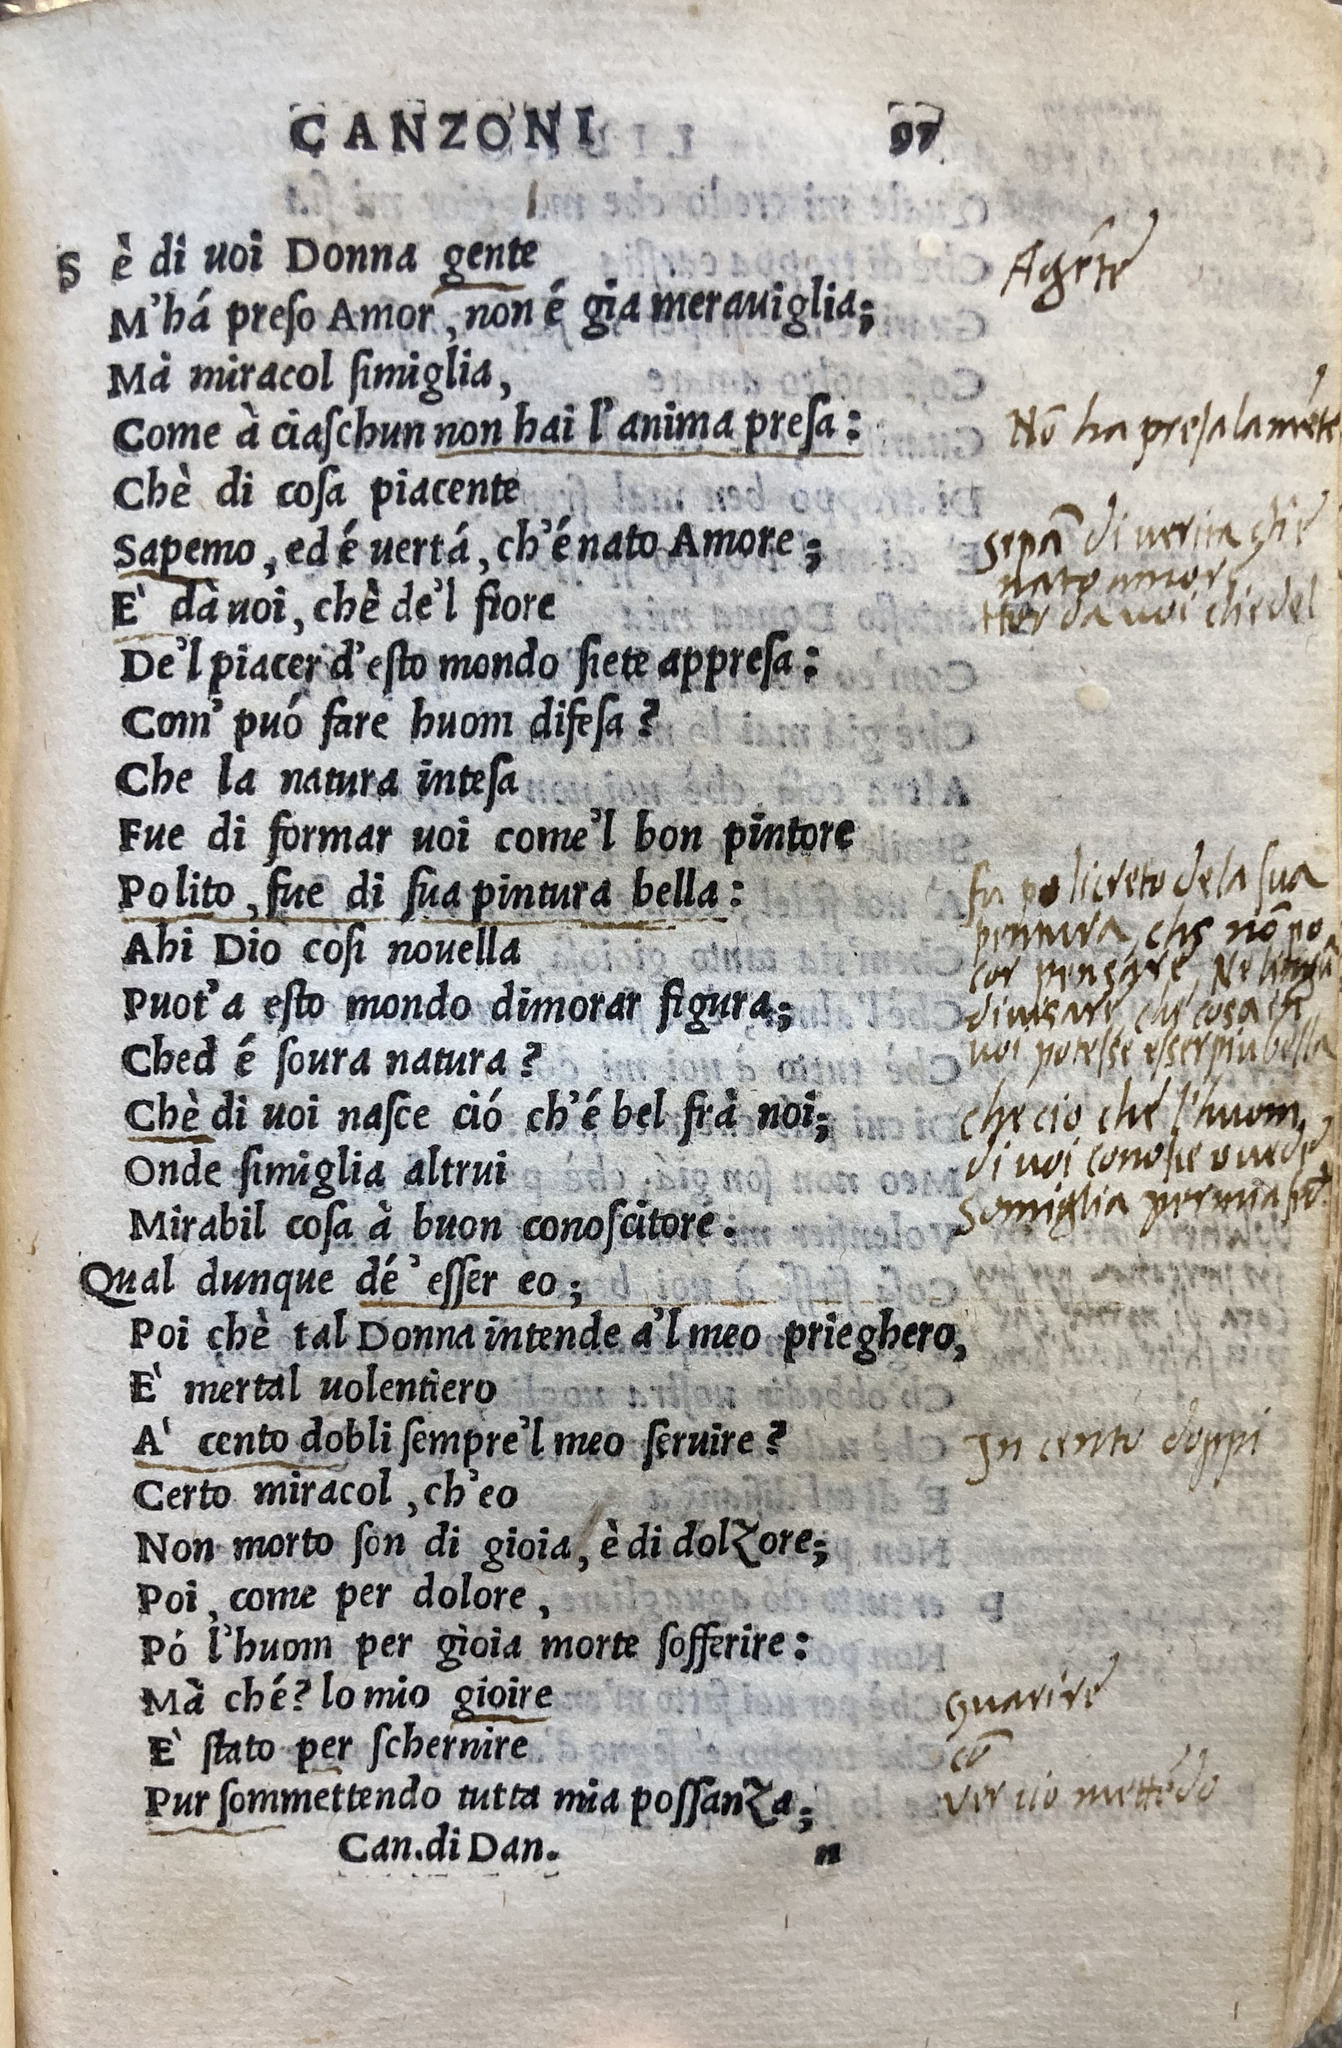 CANZONI 97
S è di uoi Donna gente
Agẽte
M'há preſo Amor, non é gia merauiglia;
Mà miracol ſimiglia,
Come à ciaſchun non hai l'anima preſa:
Nõ ha preſa la mẽte
Chè di coſa piacente
Sapemo, ed é uertá, ch'é nato Amore;
sepã di uerita che
nato amor
E' dà uoi, chè de'l fiore
da uoi che del
De'l piacer d'eſto mondo ſiete appreſa:
Com' puó fare huom difeſa?
Che la natura inteſa
Fue di formar uoi come'l bon pintore
Polito, fue di ſua pintura bella:
fu policreto de la ſua
pintura, che nõ po
cor pensare, Ne lingua
diuisare che cosa ch
uoi potesse esser piu bella
Ahi Dio coſi nouella
Puot'a eſto mondo dimorar figura;
Ched é ſoura natura?
Chè di uoi naſce ció ch'é bel frà noi;
che cio che l'huom
di uoi conoſce o uede
Onde ſimiglia altrui
Somiglia per mia
Mirabil coſa à buon conoſcitore.
Qual dunque dé' eſſer eo;
Poi chè tal Donna intende a'l meo prieghero,
E' mertal uolentiero
A' cento dobli ſempre'l meo ſeruire?
In cento doppi
Certo miracol, ch'eo
Non morto ſon di gioia, è di dolZore;
Poi, come per dolore,
Pó l'huom per gioia morte ſofferire:
Mà ché? lo mio gioire
guarire
E' ſtato per ſchernire
cõ
Pur ſommettendo tutta mia poſſanZa;
Ver cio mettẽdo
Can. di Dan. n